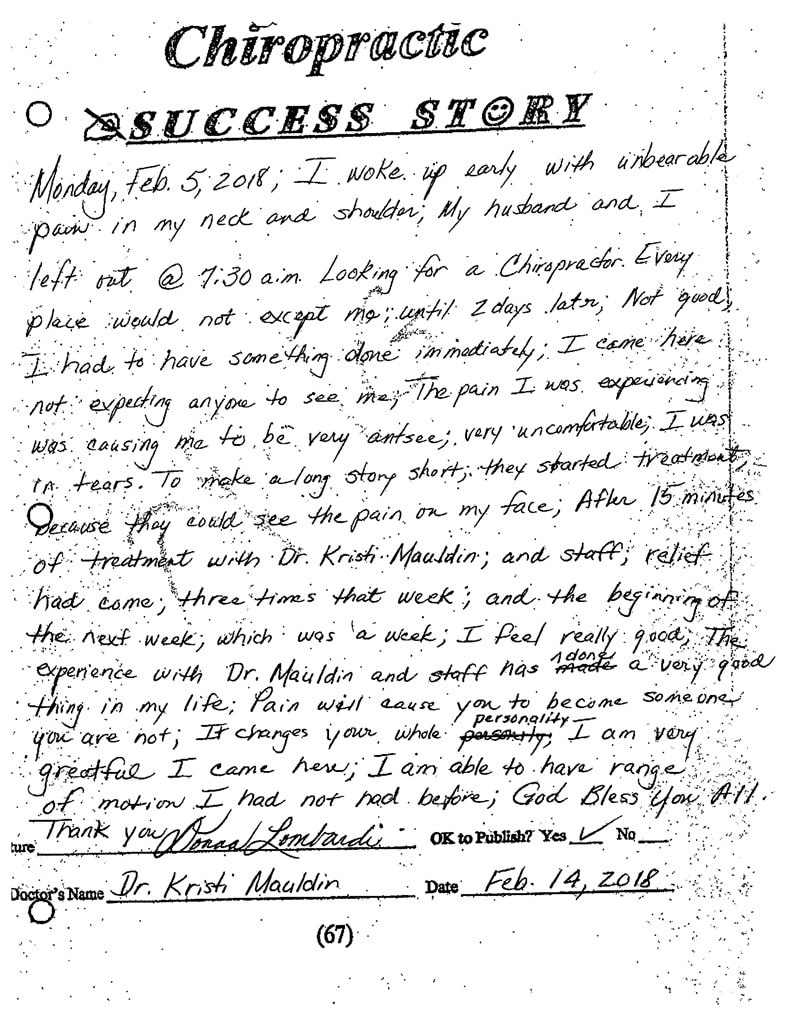 Chiropractic
SUCCESS STORY
Monday, Feb. 5, 2018; I woke up early with unbearable
pain in my neck and shoulder, My husband and I
left out @ 7:30 a.m. Looking for a Chiropractor. Every
place would not except me; until 2 days later; Not good;
I had to have something done immediately; I came here
not expecting anyone to see me; The pain I was experiencing
was causing me to be very antsee; very uncomfortable; I was
in tears. To make a long story short; they started treatment,
because they could see the pain on my face; After 15 minutes
of treatment with Dr. Kristi Mauldin; and staff; relief
had come; three times that week; and the beginning of
the next week; which was a week; I feel really good; The
experience with Dr. Mauldin and staff has made done a very good
thing in my life; Pain will cause you to become someone
you are not; It changes your whole personality; I am very
greatful I came here; I am able to have range
of motion I had not had before; God Bless You All.
ture Thank you Donna Lombardi OK to Publish? Yes ✓ No
Doctor's Name Dr. Kristi Mauldin Date Feb. 14, 2018
(67)